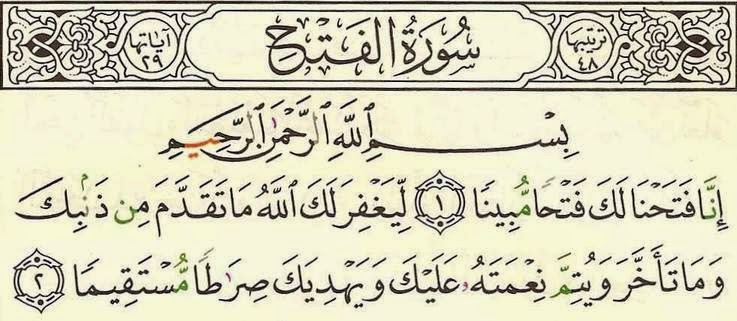 ترتيبها ٤٨ سُورَةُ الفَتْحِ آياتها ٢٩
بِسْمِ ٱللَّهِ ٱلرَّحْمَٰنِ ٱلرَّحِيمِ
إِنَّا فَتَحْنَا لَكَ فَتْحًا مُّبِينًا ١ لِّيَغْفِرَ لَكَ ٱللَّهُ مَا تَقَدَّمَ مِن ذَنۢبِكَ
وَمَا تَأَخَّرَ وَيُتِمَّ نِعْمَتَهُۥ عَلَيْكَ وَيَهْدِيَكَ صِرَٰطًا مُّسْتَقِيمًا ٢